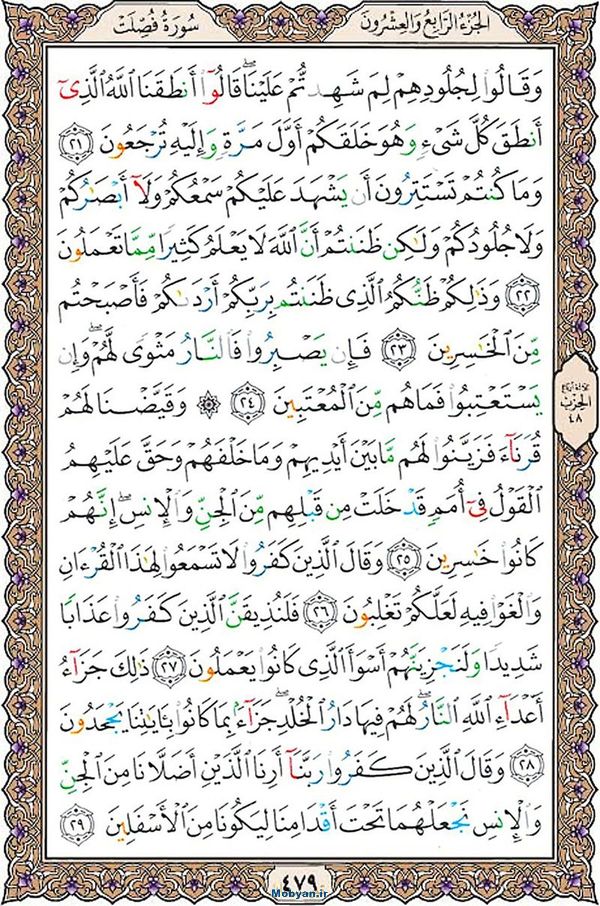 سُورَةُ فُصِّلَتْ
الجُزْءُ الرَّابِعُ وَالعِشْرُونَ
وَقَالُوا۟ لِجُلُودِهِمْ لِمَ شَهِدتُّمْ عَلَيْنَا ۖ قَالُوٓا۟ أَنطَقَنَا ٱللَّهُ ٱلَّذِىٓ
أَنطَقَ كُلَّ شَىْءٍ وَهُوَ خَلَقَكُمْ أَوَّلَ مَرَّةٍ وَإِلَيْهِ تُرْجَعُونَ ٢١
وَمَا كُنتُمْ تَسْتَتِرُونَ أَن يَشْهَدَ عَلَيْكُمْ سَمْعُكُمْ وَلَآ أَبْصَٰرُكُمْ
وَلَا جُلُودُكُمْ وَلَٰكِن ظَنَنتُمْ أَنَّ ٱللَّهَ لَا يَعْلَمُ كَثِيرًا مِّمَّا تَعْمَلُونَ
٢٢ وَذَٰلِكُمْ ظَنُّكُمُ ٱلَّذِى ظَنَنتُم بِرَبِّكُمْ أَرْدَىٰكُمْ فَأَصْبَحْتُم
مِّنَ ٱلْخَٰسِرِينَ ٢٣ فَإِن يَصْبِرُوا۟ فَٱلنَّارُ مَثْوًى لَّهُمْ ۖ وَإِن
يَسْتَعْتِبُوا۟ فَمَا هُم مِّنَ ٱلْمُعْتَبِينَ ٢٤ ۞ وَقَيَّضْنَا لَهُمْ
قُرَنَآءَ فَزَيَّنُوا۟ لَهُم مَّا بَيْنَ أَيْدِيهِمْ وَمَا خَلْفَهُمْ وَحَقَّ عَلَيْهِمُ
ٱلْقَوْلُ فِىٓ أُمَمٍ قَدْ خَلَتْ مِن قَبْلِهِم مِّنَ ٱلْجِنِّ وَٱلْإِنسِ ۖ إِنَّهُمْ
كَانُوا۟ خَٰسِرِينَ ٢٥ وَقَالَ ٱلَّذِينَ كَفَرُوا۟ لَا تَسْمَعُوا۟ لِهَٰذَا ٱلْقُرْءَانِ
وَٱلْغَوْا۟ فِيهِ لَعَلَّكُمْ تَغْلِبُونَ ٢٦ فَلَنُذِيقَنَّ ٱلَّذِينَ كَفَرُوا۟ عَذَابًا
شَدِيدًا وَلَنَجْزِيَنَّهُمْ أَسْوَأَ ٱلَّذِى كَانُوا۟ يَعْمَلُونَ ٢٧ ذَٰلِكَ جَزَآءُ
أَعْدَآءِ ٱللَّهِ ٱلنَّارُ ۖ لَهُمْ فِيهَا دَارُ ٱلْخُلْدِ ۖ جَزَآءًۢ بِمَا كَانُوا۟ بِـَٔايَٰتِنَا يَجْحَدُونَ
٢٨ وَقَالَ ٱلَّذِينَ كَفَرُوا۟ رَبَّنَآ أَرِنَا ٱلَّذَيْنِ أَضَلَّانَا مِنَ ٱلْجِنِّ
وَٱلْإِنسِ نَجْعَلْهُمَا تَحْتَ أَقْدَامِنَا لِيَكُونَا مِنَ ٱلْأَسْفَلِينَ ٢٩
الحِزْب
٤٨
٤٧٩
Mobyan.ir